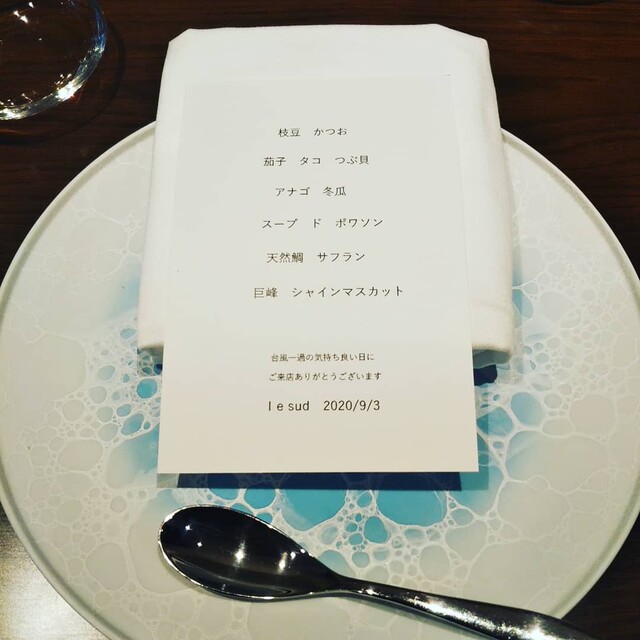 枝豆　かつお
茄子　タコ　つぶ貝
アナゴ　冬瓜
スープ　ド　ポワソン
天然鯛　サフラン
巨峰　シャインマスカット
台風一過の気持ち良い日に
ご来店ありがとうございます
le sud　2020/9/3